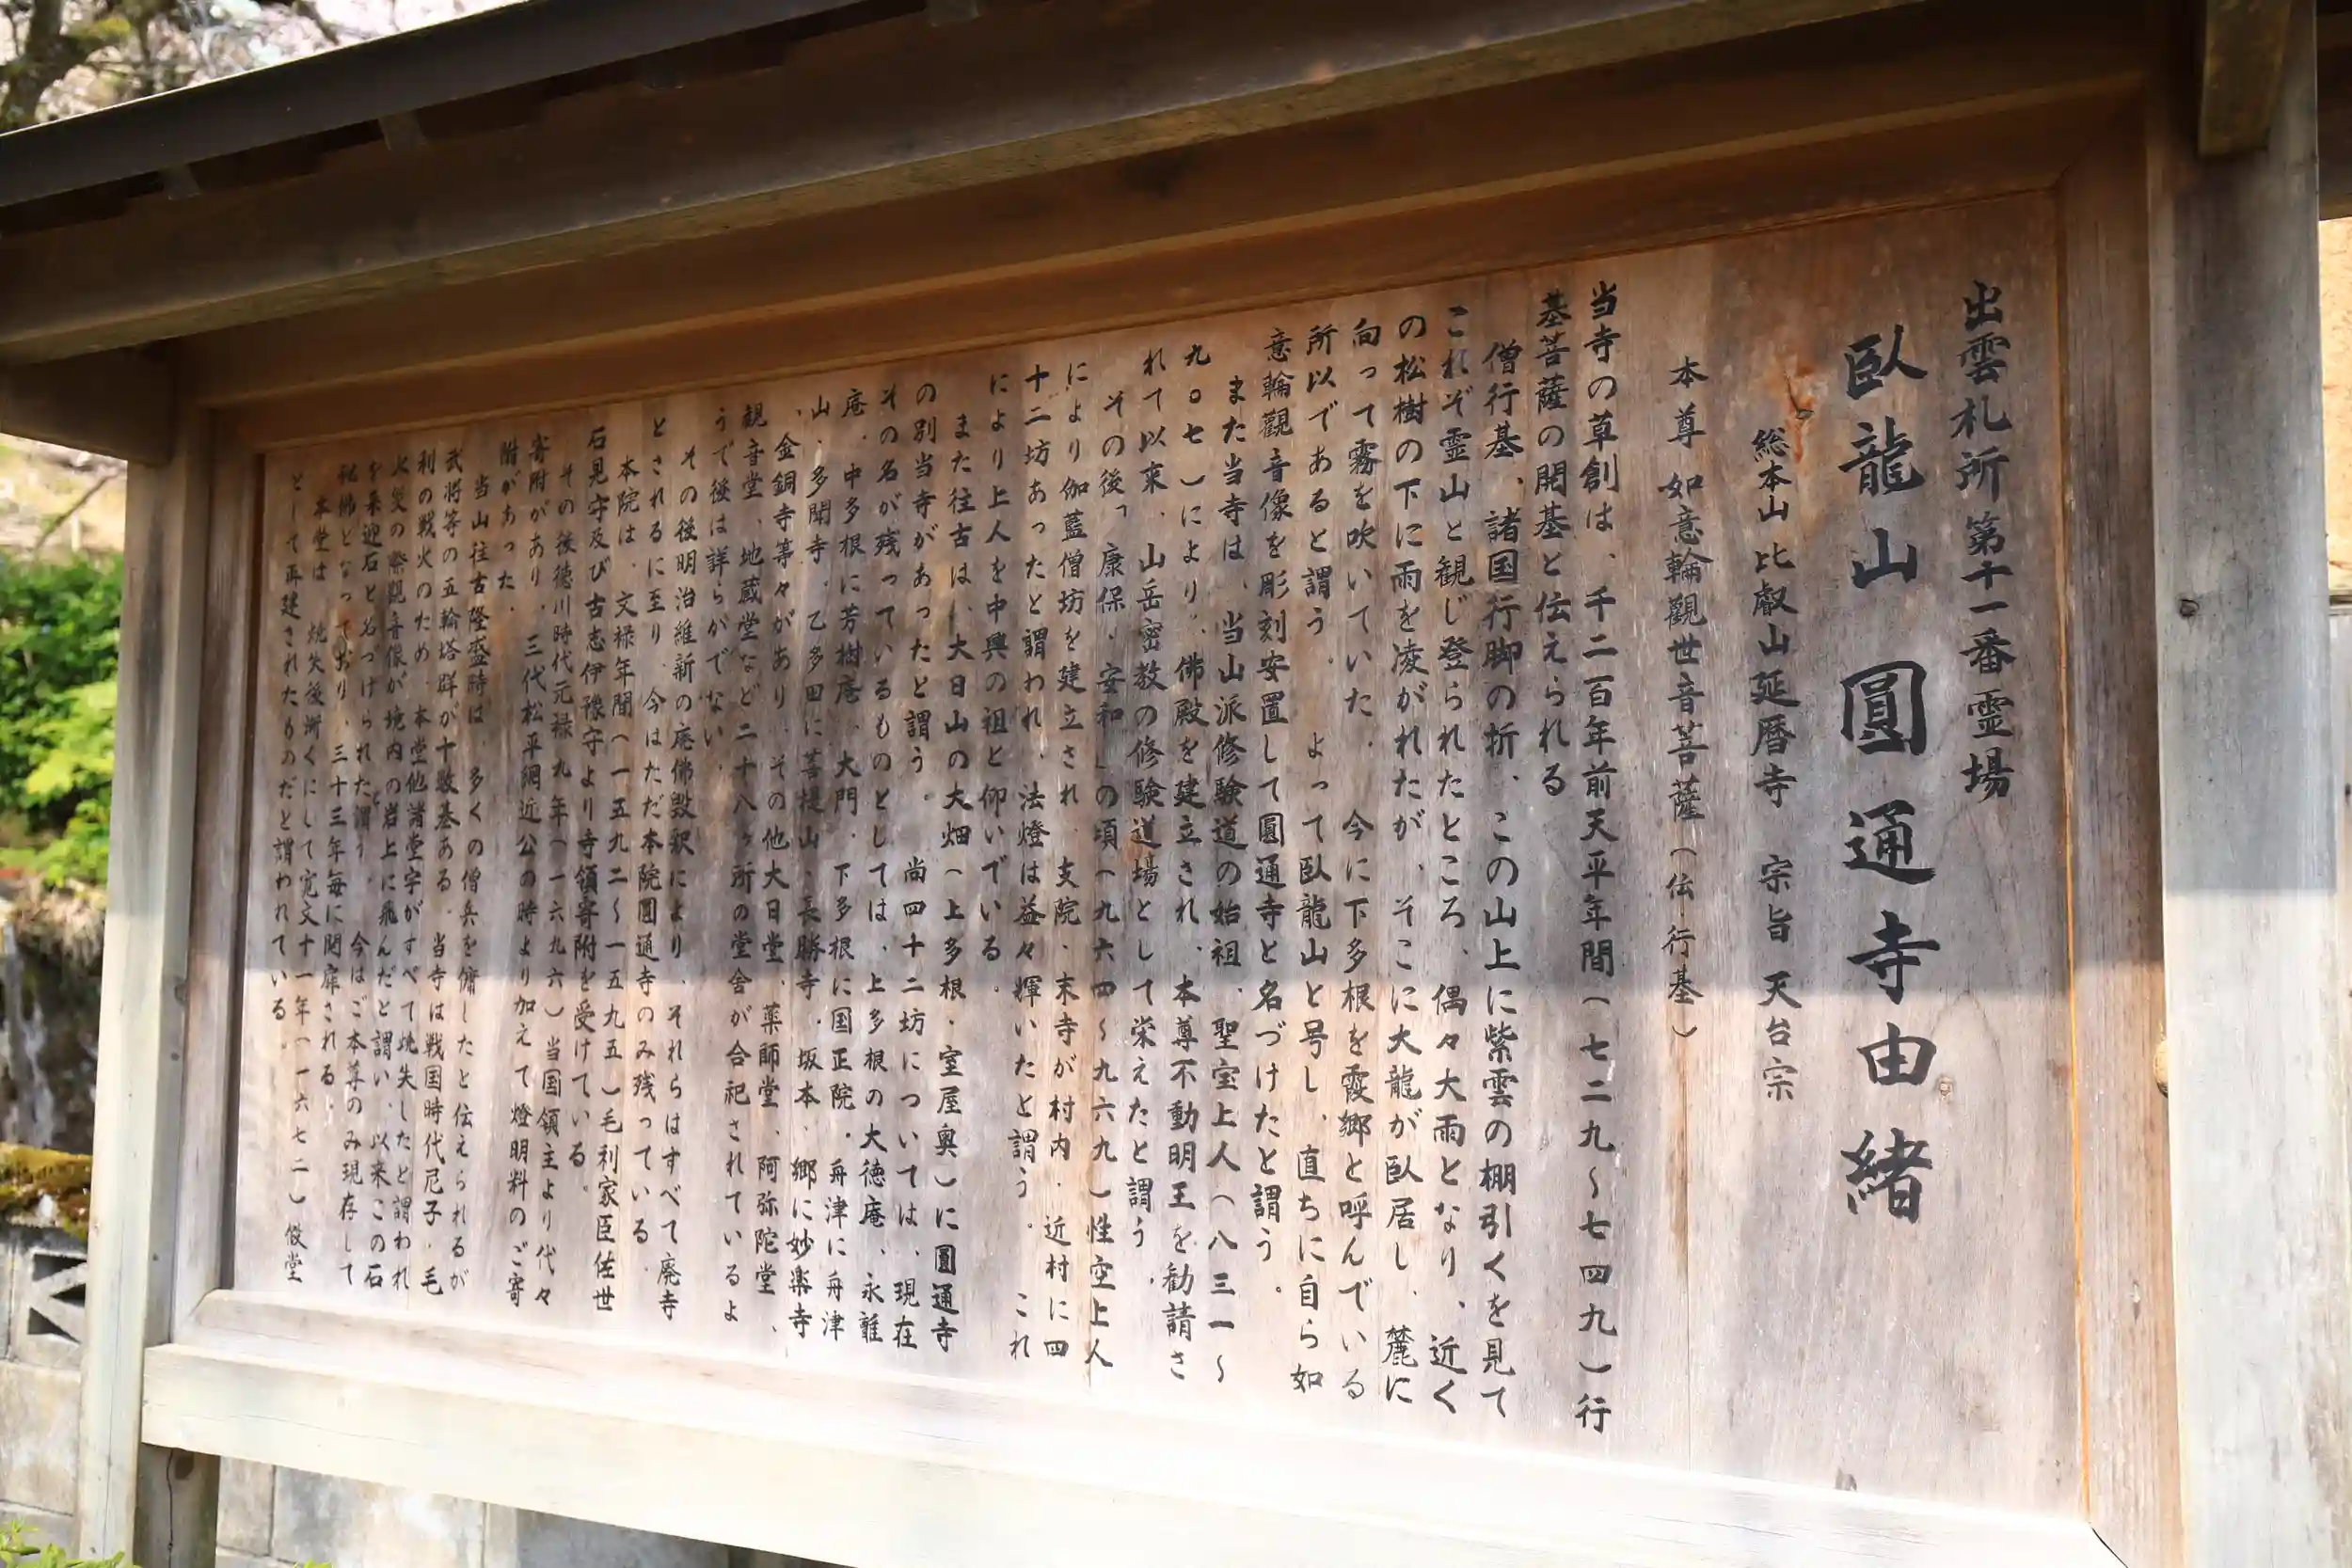 出雲札所第十一番霊場
臥龍山圓通寺由緒
総本山 比叡山延暦寺 宗旨 天台宗
本尊 如意輪觀世音菩薩（伝 行基）
当寺の草創は、千二百年前天平年間（七二九〜七四九）行
基菩薩の開基と伝えられる
僧行基、諸国行脚の折、この山上に紫雲の棚引くを見て
これぞ霊山と観じ登られたところ、偶々大雨となり、近く
の松樹の下に雨を凌がれたが、そこに大龍が臥居し、麓に
向って霧を吹いていた。今に下多根を霞郷と呼んでいる
所以であると謂う。よって臥龍山と号し、直ちに自ら如
意輪觀音像を彫刻安置して圓通寺と名づけたと謂う。
また当寺は、当山派修験道の始祖、聖宝上人（八三一〜
九〇七）により、佛殿を建立され、本尊不動明王を勧請さ
れて以来、山岳密教の修験道場として栄えたと謂う。
その後「康保・安和」の頃（九六四〜九六九）性空上人
により伽藍僧坊を建立され、支院・末寺が村内・近村に四
十二坊あったと謂われ、法燈は益々輝いたと謂う。これ
により上人を中興の祖と仰いでいる。
また往古は、大日山の大畑（上多根・室屋奥）に圓通寺
の別当寺があったと謂う。尚四十二坊については、現在
その名が残っているものとしては、上多根の大徳庵、永離
庵・中多根に芳樹庵、大門・下多根に国正院・舟津に舟津
山・多聞寺・乙多田に菩提山・長勝寺・坂本・郷に妙楽寺
・金銅寺等々があり、その他大日堂、薬師堂、阿弥陀堂、
観音堂、地蔵堂など二十八ヶ所の堂舎が合祀されているよ
うで後は詳らかでない。
その後明治維新の廃佛毀釈により、それらはすべて廃寺
とされるに至り、今はただ本院圓通寺のみ残っている。
本院は、文禄年間（一五九二〜一五九五）毛利家臣佐世
石見守及び古志伊豫守より寺領寄附を受けている。
その後徳川時代元禄九年（一六九六）当国領主より代々
寄附があり、三代松平綱近公の時より加えて燈明料のご寄
附があった。
当山往古隆盛時は、多くの僧兵を傭したと伝えられるが
武将等の五輪塔群が十数基ある。当寺は戦国時代尼子・毛
利の戦火のため、本堂他諸堂宇がすべて焼失したと謂われ
火災の際觀音像が境内の岩上に飛んだと謂い、以来この石
を来迎石と名づけられたと謂う。今はご本尊のみ現存して
秘佛となっており、三十三年毎に開扉される。
本堂は、焼失後漸くにして寛文十一年（一六七二）仮堂
として再建されたものだと謂われている。